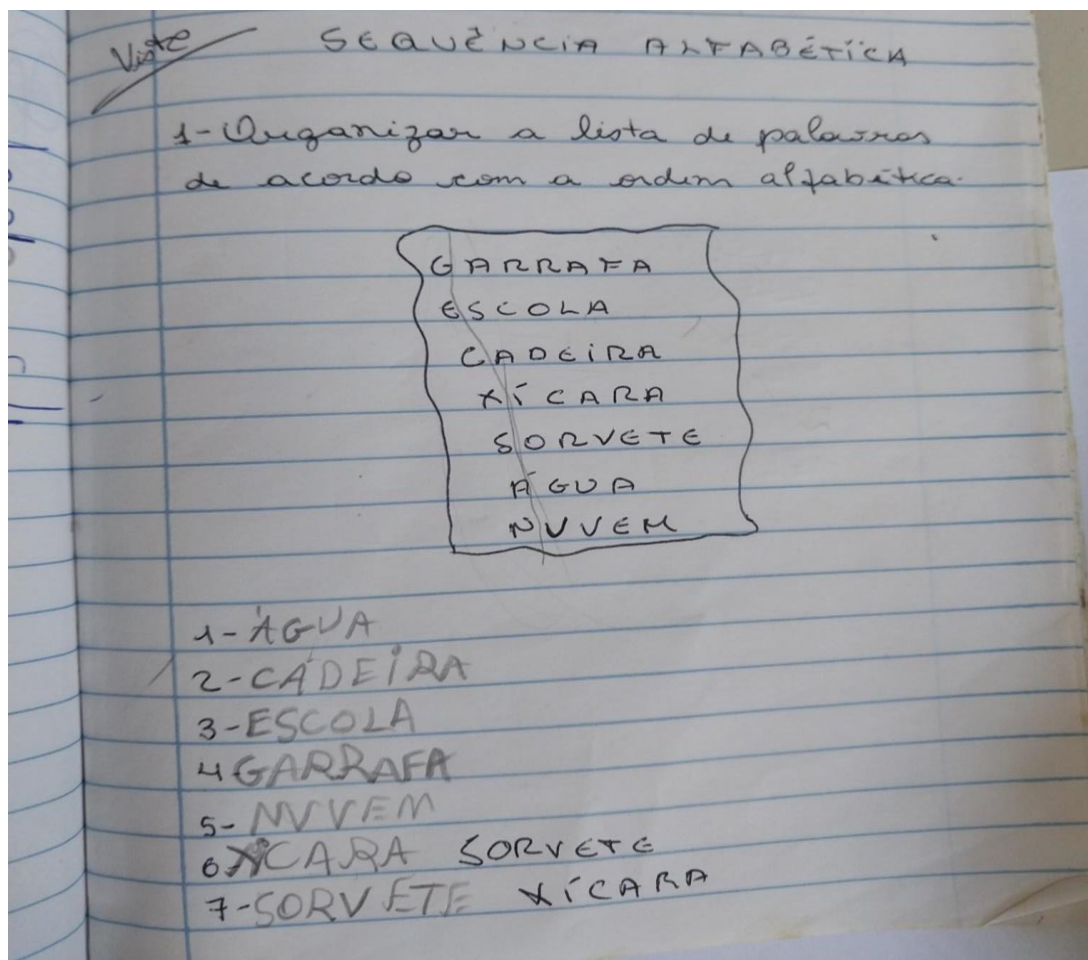 Visto
SEQUÊNCIA ALFABÉTICA
1- Organizar a lista de palavras
de acordo com a ordem alfabética.
GARRAFA
ESCOLA
CADEIRA
XÍCARA
SORVETE
ÁGUA
NUVEM
1- ÁGUA
2- CADEIRA
3- ESCOLA
4 GARRAFA
5- NUVEM
6 XICARA SORVETE
7- SORVETE XÍCARA